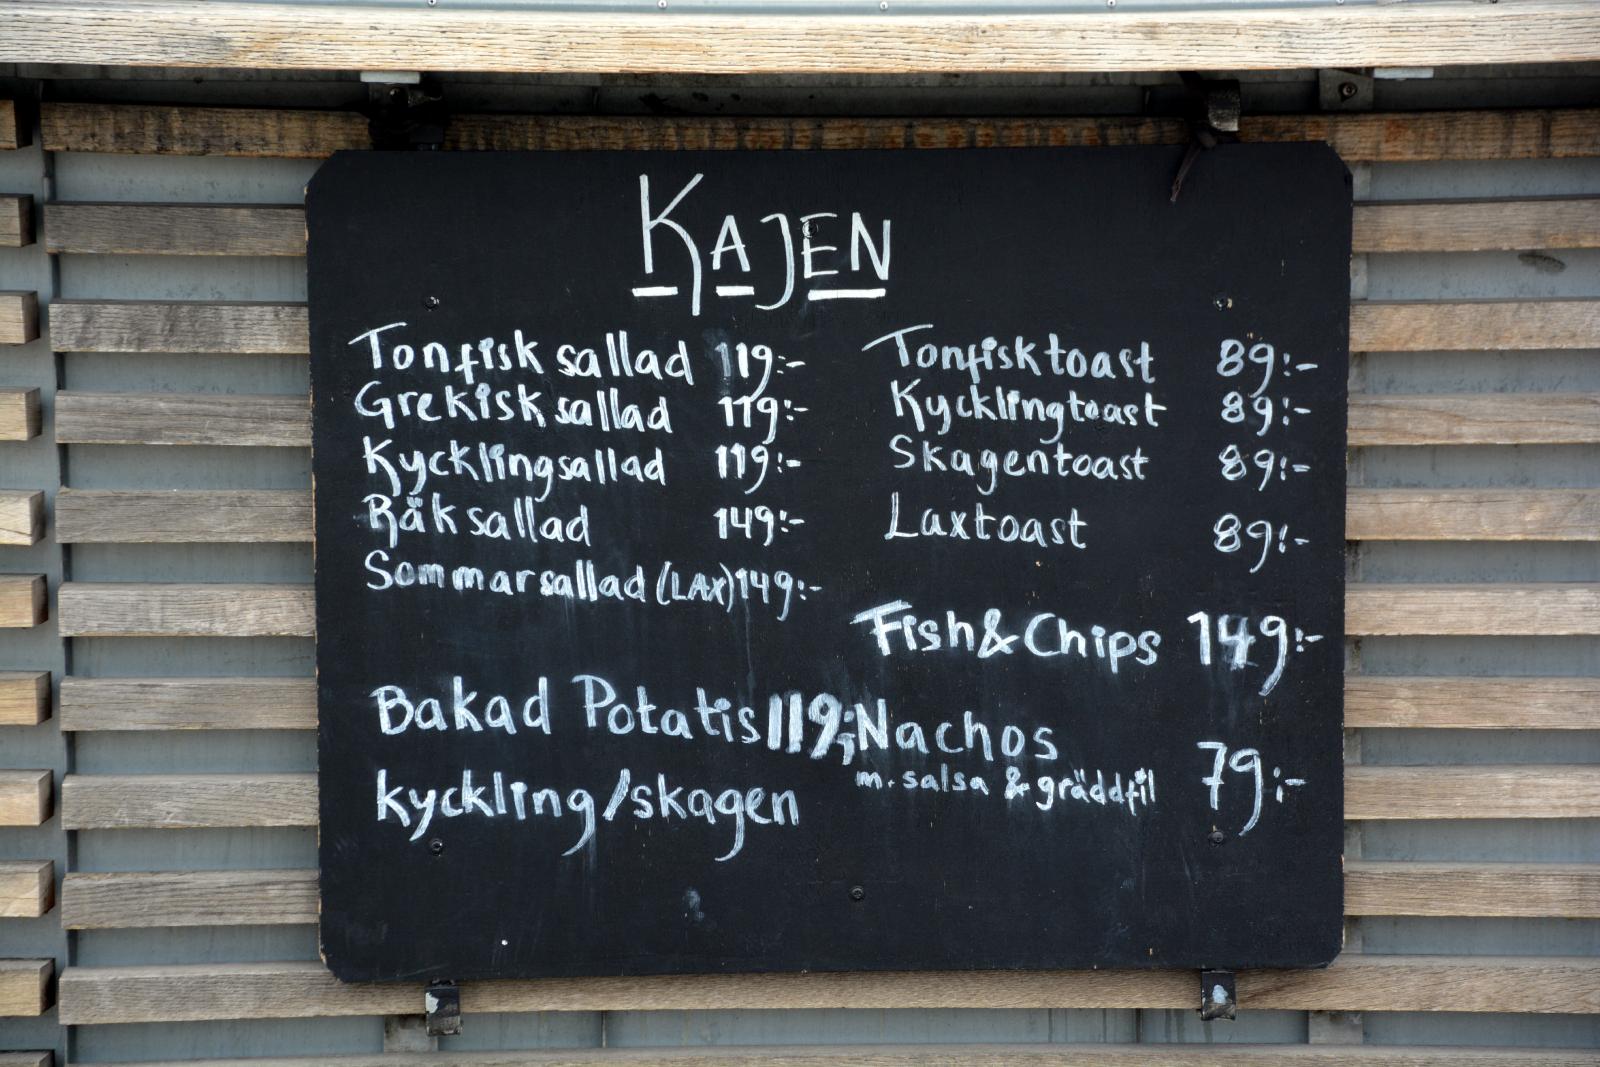 KAJEN
Tonfisksallad 119:-
Grekisksallad 119:-
Kycklingsallad 119:-
Räksallad 149:-
Sommarsallad (LAX) 149:-
Bakad Potatis 119:-
kyckling/skagen
Tonfisktoast 89:-
Kycklingtoast 89:-
Skagentoast 89:-
Laxtoast 89:-
Fish & Chips 149:-
Nachos
m. salsa & gräddfil 79:-